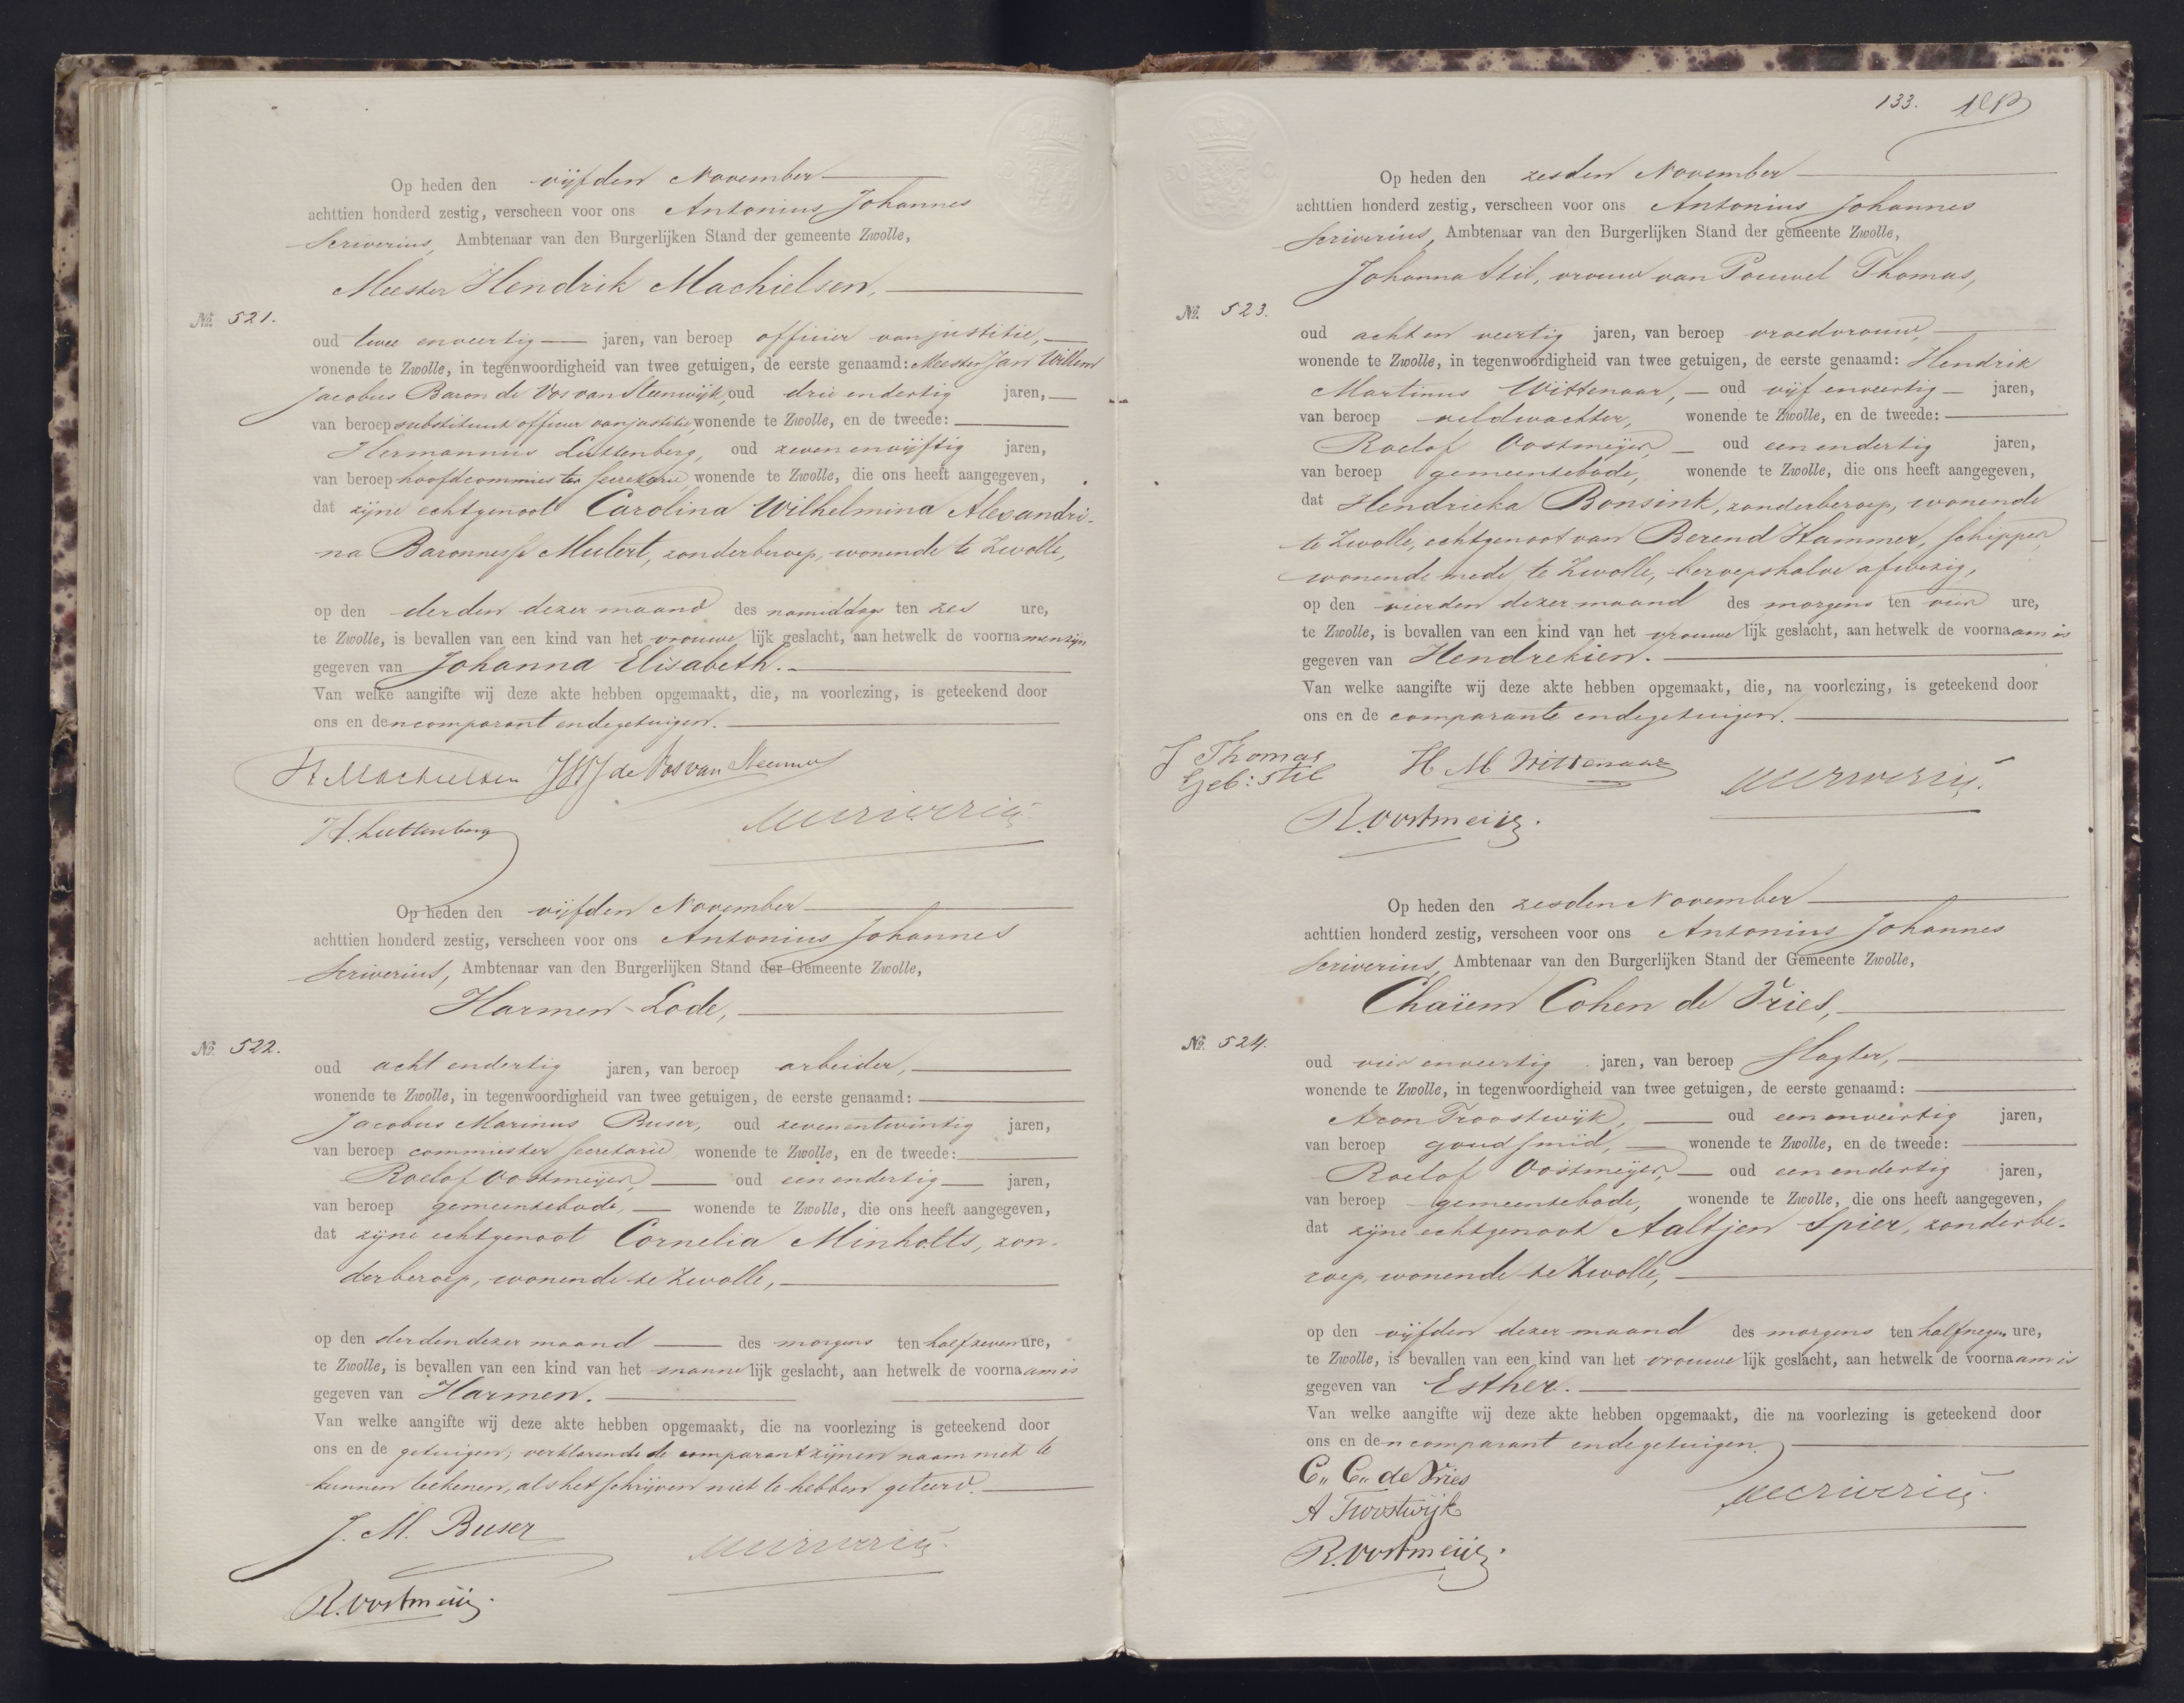 Op heden den vijfden November
achttien honderd zestig, verscheen voor ons Antonius Johannes
Scriverius, Ambtenaar van den Burgerlijken Stand der gemeente Zwolle,
Meester Hendrik Machielsen,
No. 521.
oud twee en veertig jaren, van beroep officier van justitie,
wonende te Zwolle, in tegenwoordigheid van twee getuigen, de eerste genaamd: Meester Jan Willem
Jacobus Baron de Vos van Steenwijk, oud drie en dertig jaren,
van beroep substituut officier van justitie, wonende te Zwolle, en de tweede:
Hermannus Luttenberg, oud zeven en vijftig jaren,
van beroep hoofdcommies ter secretarie, wonende te Zwolle, die ons heeft aangegeven,
dat zijne echtgenoot Carolina Wilhelmina Alexandri-
na Baronnesse Mulert, zonder beroep, wonende te Zwolle,
op den derden dezer maand des namiddags ten zes ure,
te Zwolle, is bevallen van een kind van het vrouwelijk geslacht, aan hetwelk de voornamen zijn
gegeven van Johanna Elisabeth.
Van welke aangifte wij deze akte hebben opgemaakt, die, na voorlezing, is geteekend door
ons en den comparant en de getuigen.
H Machielsen JWJ de Vos van Steenwijk
H. Luttenberg
Scriverius
Op heden den vijfden November
achttien honderd zestig, verscheen voor ons Antonius Johannes
Scriverius, Ambtenaar van den Burgerlijken Stand der Gemeente Zwolle,
Harmen Lode,
No. 522.
oud acht en dertig jaren, van beroep arbeider,
wonende te Zwolle, in tegenwoordigheid van twee getuigen, de eerste genaamd:
Jacobus Marinus Buser, oud zeven en twintig jaren,
van beroep commies ter secretarie, wonende te Zwolle, en de tweede:
Roelof Oostmeijer, oud een en dertig jaren,
van beroep gemeentebode, wonende te Zwolle, die ons heeft aangegeven,
dat zijne echtgenoot Cornelia Minholts, zon-
der beroep, wonende te Zwolle,
op den derden dezer maand des morgens ten half zeven ure,
te Zwolle, is bevallen van een kind van het mannelijk geslacht, aan hetwelk de voornaam is
gegeven van Harmen.
Van welke aangifte wij deze akte hebben opgemaakt, die na voorlezing is geteekend door
ons en de getuigen; verklarende de comparant zijnen naam niet te
kunnen teekenen, als het schrijven niet te hebben geleerd.
J. M. Buser
Scriverius
R. Oostmeijer
133.
Op heden den zesden November
achttien honderd zestig, verscheen voor ons Antonius Johannes
Scriverius, Ambtenaar van den Burgerlijken Stand der gemeente Zwolle,
Johanna Stil, vrouw van Pouwel Thomas,
No. 523.
oud acht en veertig jaren, van beroep vroedvrouw,
wonende te Zwolle, in tegenwoordigheid van twee getuigen, de eerste genaamd: Hendrik
Martinus Wittenaar, oud vijf en veertig jaren,
van beroep veldwachter, wonende te Zwolle, en de tweede:
Roelof Oostmeijer, oud een en dertig jaren,
van beroep gemeentebode, wonende te Zwolle, die ons heeft aangegeven,
dat Hendrieka Bonsink, zonder beroep, wonende
te Zwolle, echtgenoot van Berend Hammer, schipper,
wonende mede te Zwolle, beroepshalve afwezig,
op den vierden dezer maand des morgens ten vier ure,
te Zwolle, is bevallen van een kind van het vrouwelijk geslacht, aan hetwelk de voornaam is
gegeven van Hendrekien.
Van welke aangifte wij deze akte hebben opgemaakt, die, na voorlezing, is geteekend door
ons en de comparante en de getuigen.
J Thomas
Geb: Stil
H M Wittenaar
Scriverius
R. Oostmeijer
Op heden den zesden November
achttien honderd zestig, verscheen voor ons Antonius Johannes
Scriverius, Ambtenaar van den Burgerlijken Stand der Gemeente Zwolle,
Chaïem Cohen de Vries,
No. 524.
oud vier en veertig jaren, van beroep slagter,
wonende te Zwolle, in tegenwoordigheid van twee getuigen, de eerste genaamd:
Aron Troostwijk, oud een en veertig jaren,
van beroep goudsmid, wonende te Zwolle, en de tweede:
Roelof Oostmeijer, oud een en dertig jaren,
van beroep gemeentebode, wonende te Zwolle, die ons heeft aangegeven,
dat zijne echtgenoot Aaltjen Spier, zonder be-
roep, wonende te Zwolle,
op den vijfden dezer maand des morgens ten half negen ure,
te Zwolle, is bevallen van een kind van het vrouwelijk geslacht, aan hetwelk de voornaam is
gegeven van Esther.
Van welke aangifte wij deze akte hebben opgemaakt, die na voorlezing is geteekend door
ons en den comparant en de getuigen.
C,, C,, de Vries
A Troostwijk
Scriverius
R. Oostmeijer